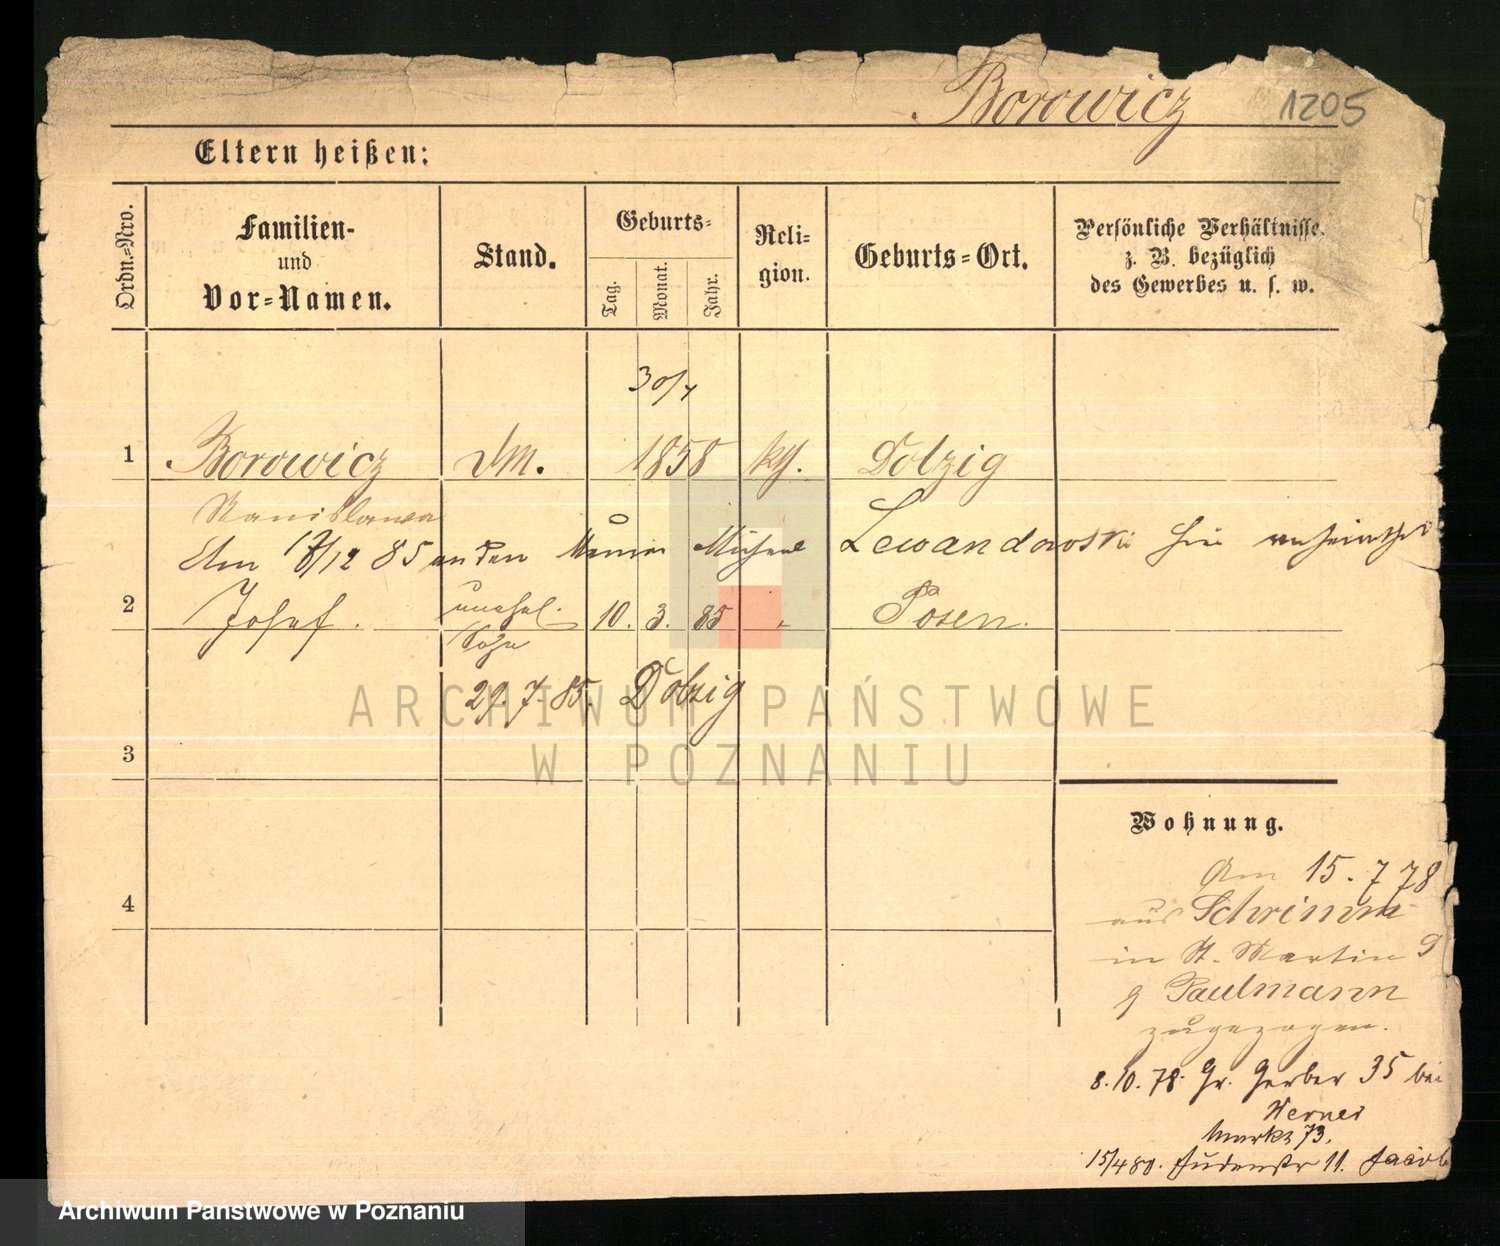 Borowicz 1205
Eltern heißen:
Ordn.=Nro.
Familien-
und
Vor=Namen.
Stand.
Geburts=
Tag.
Monat.
Jahr.
Reli=
gion.
Geburts=Ort.
Persönliche Verhältnisse.
z. B. bezüglich
des Gewerbes u. s. w.
30/4
1 Borowicz 1858 Dolzig
Stanislawa
Am 12 85 an den Michael Lewandowski hie
2 Josef. unehel. 10. 3. 85 " Posen.
Sohn
29. 7. 85. Dolzig
ARCHIWUM PAŃSTWOWE
W POZNANIU
3
Wohnung.
Am 15. 7 78
aus Schrimm
4
in St. Martin 9
Paulmann
zugezogen.
8. 10. 78. Gr. Gerber 35 bei
Werner
Markt 73.
15/4 80. Judenstr 11. Jacob
Archiwum Państwowe w Poznaniu